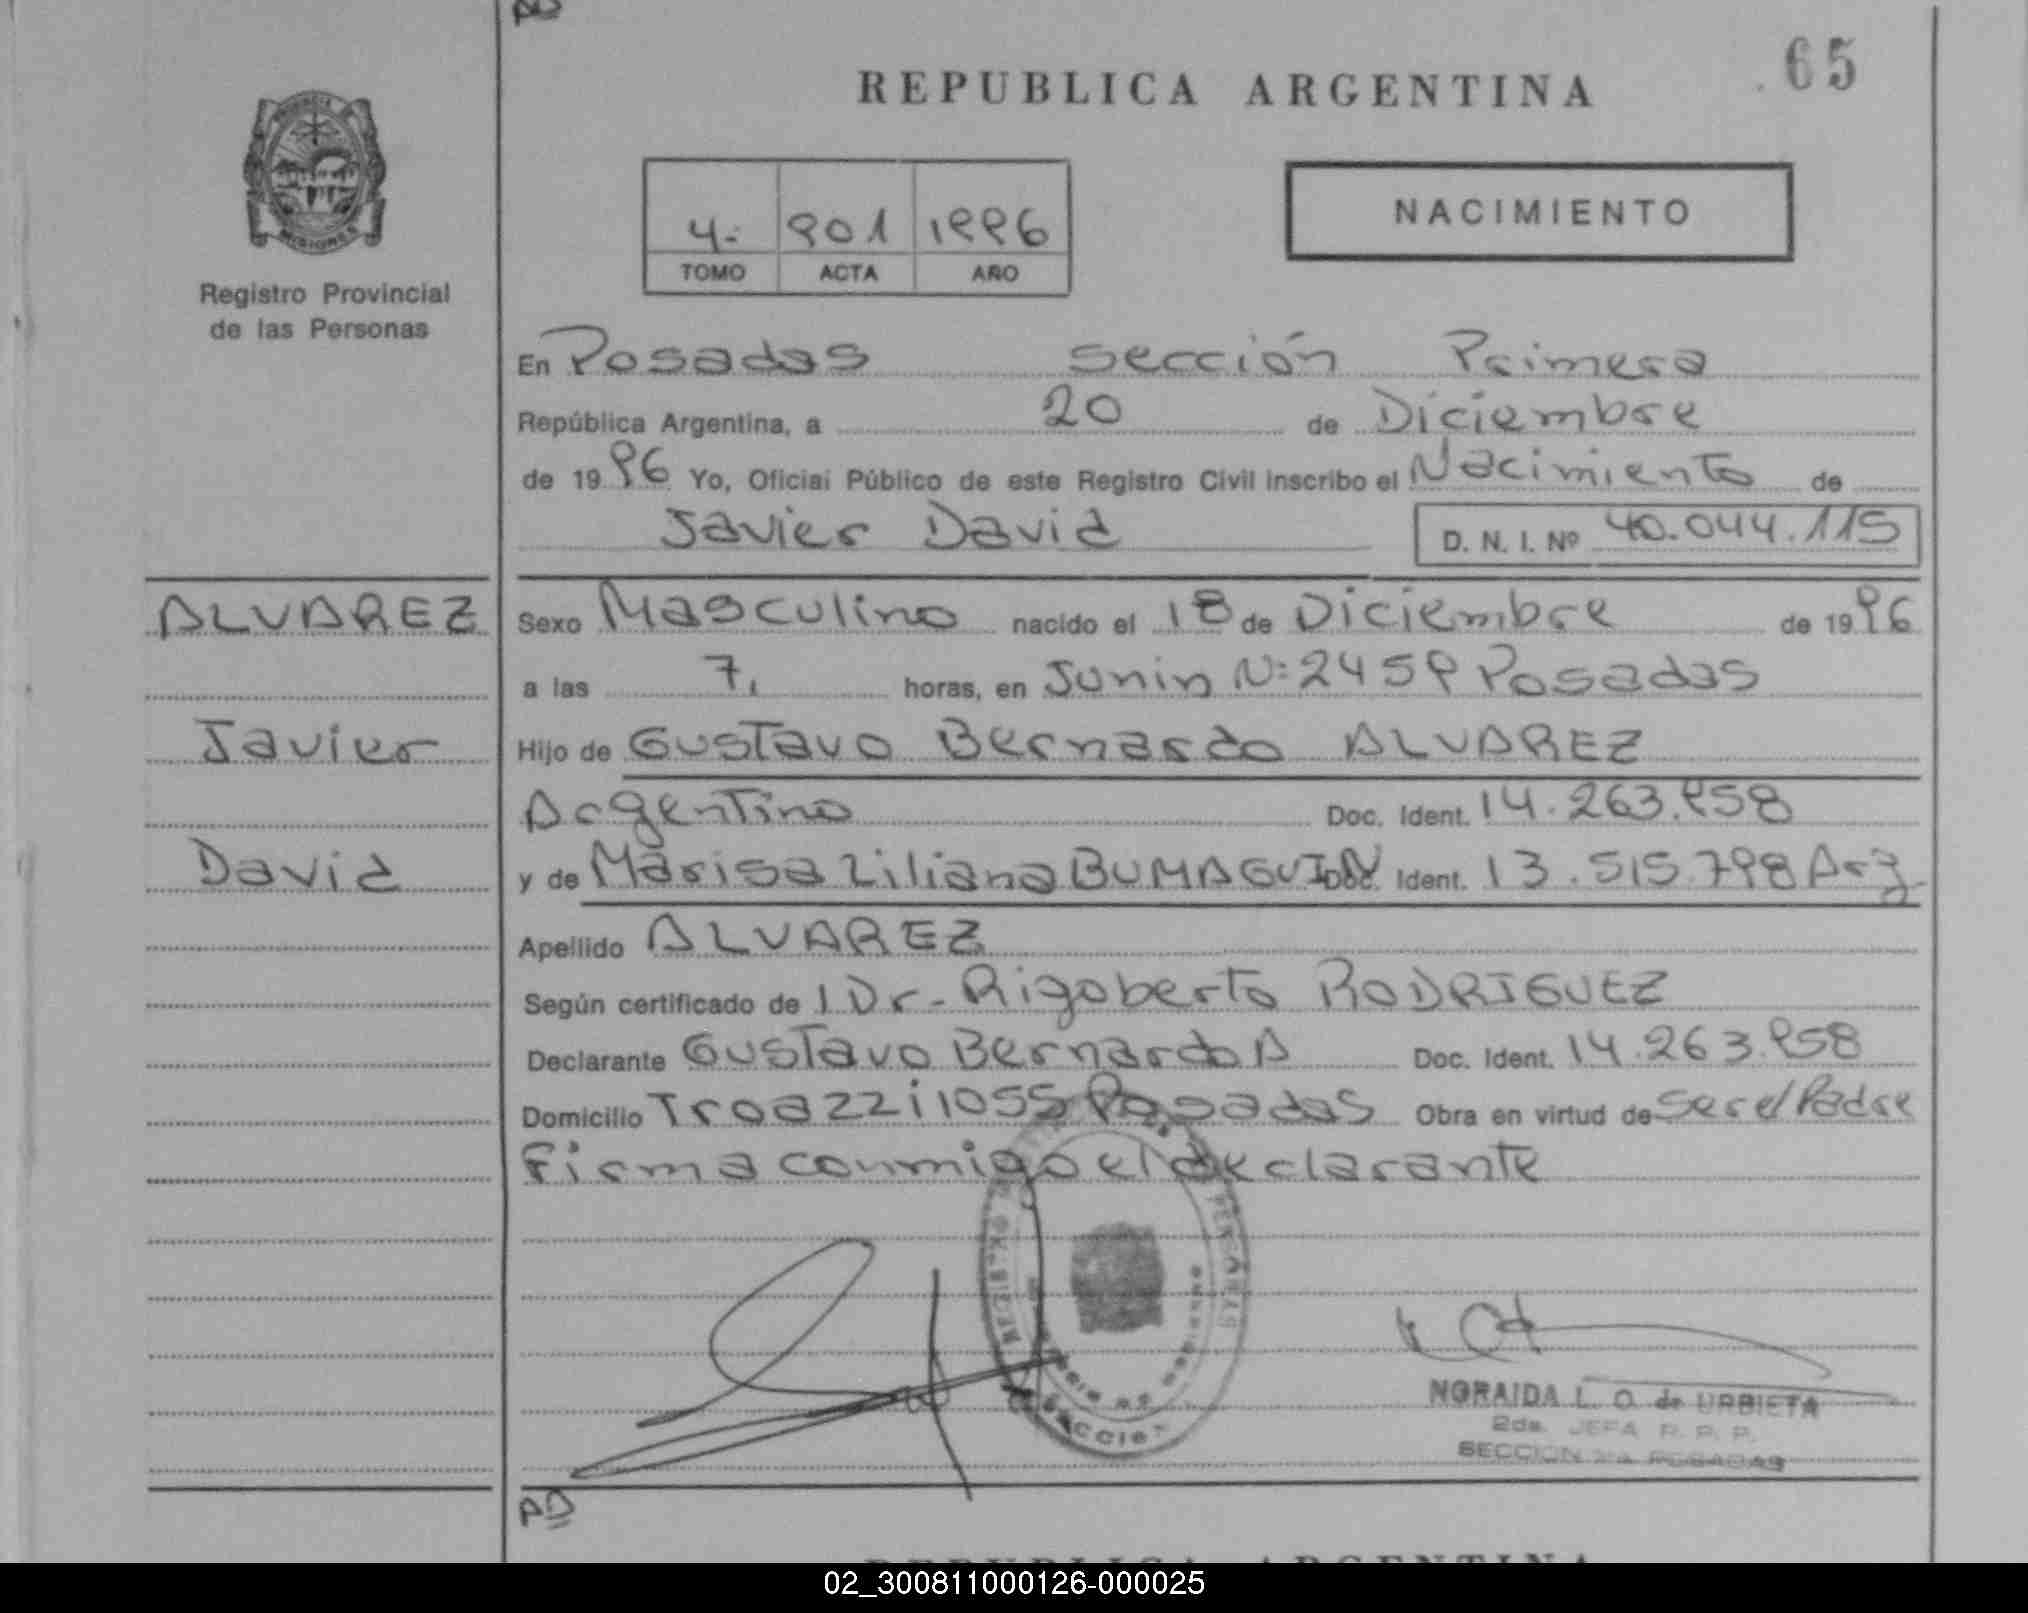 65
REPUBLICA ARGENTINA
MISIONES
Registro Provincial
de las Personas
4- 901 1996
TOMO ACTA AÑO
NACIMIENTO
En Posadas sección Primera
República Argentina, a 20 de Diciembre
de 1996 Yo, Oficial Público de este Registro Civil inscribo el Nacimiento de
Javier David D. N. I. Nº 40.044.115
ALVAREZ
Javier
David
Sexo Masculino nacido el 18 de Diciembre de 1996
a las 7, horas, en Junin N: 2459 Posadas
Hijo de Gustavo Bernardo ALVAREZ
Argentino Doc. Ident. 14.263.958
y de Marisa Liliana BUMAGUIN Doc. Ident. 13.515.798 Arg
Apellido ALVAREZ
Según certificado de 1 Dr- Rigoberto RODRIGUEZ
Declarante Gustavo Bernardo A Doc. Ident. 14.263.958
Domicilio Troazzi 1055 Posadas Obra en virtud de ser el Padre
Firma conmigo el declarante
NORAIDA L. O. de URBIETA
2da. JEFA R. P. P.
SECCION POSADAS
AD
REPUBLICA ARGENTINA
02_300811000126-000025